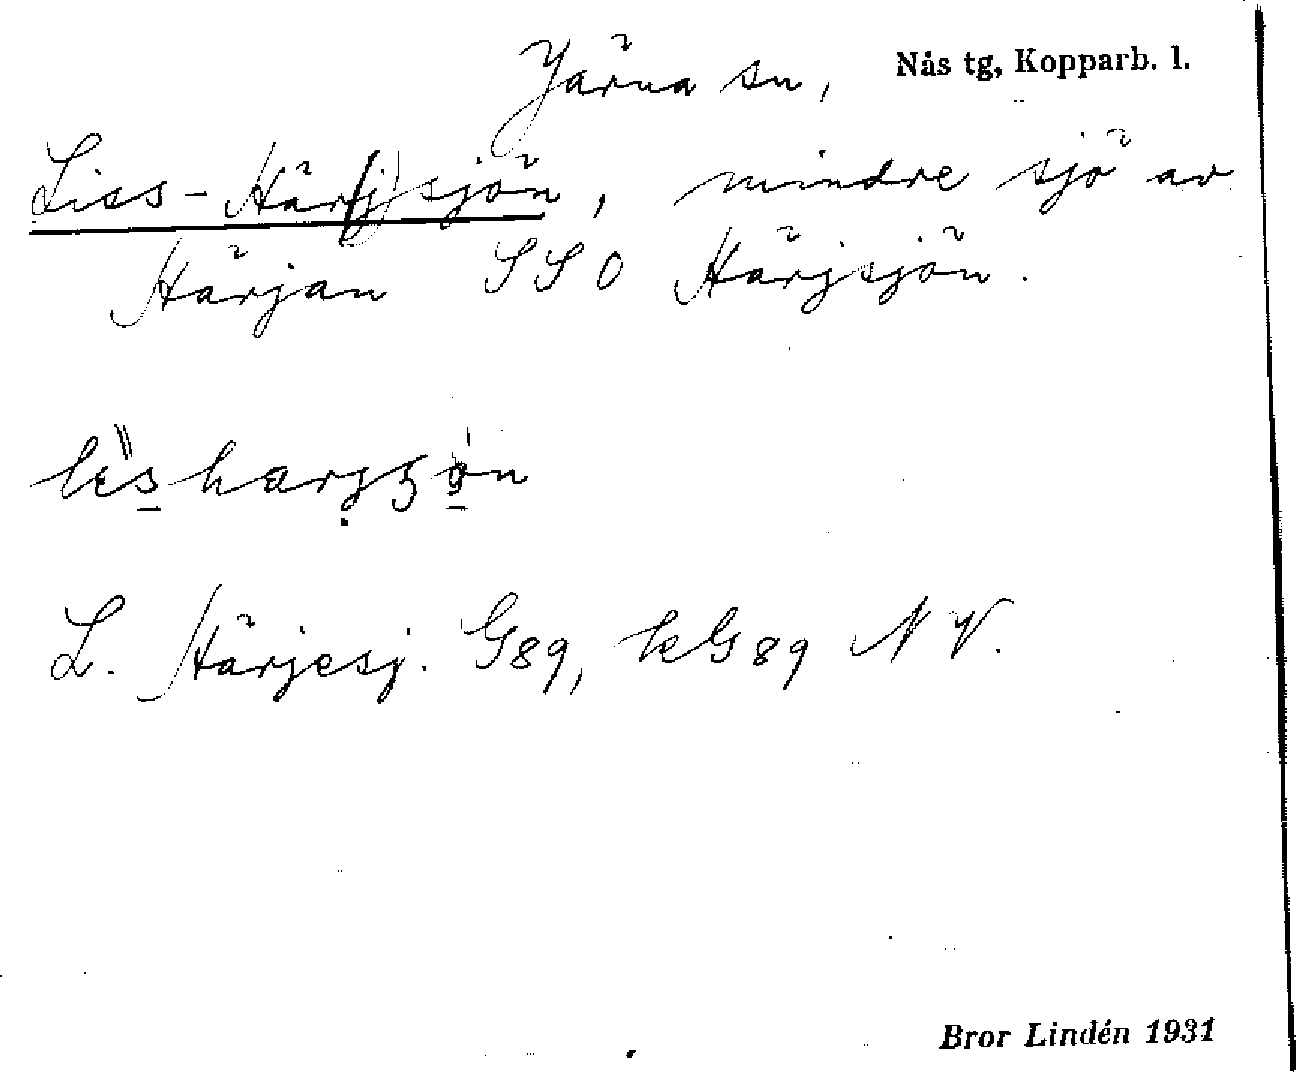 Järna sn, Nås tg, Kopparb. l.
Liss-Här(j)sjön, mindre sjö av
Härjan SSO Härjsjön.
L. Härjesj. G89, kG89 NV.
Bror Lindén 1931